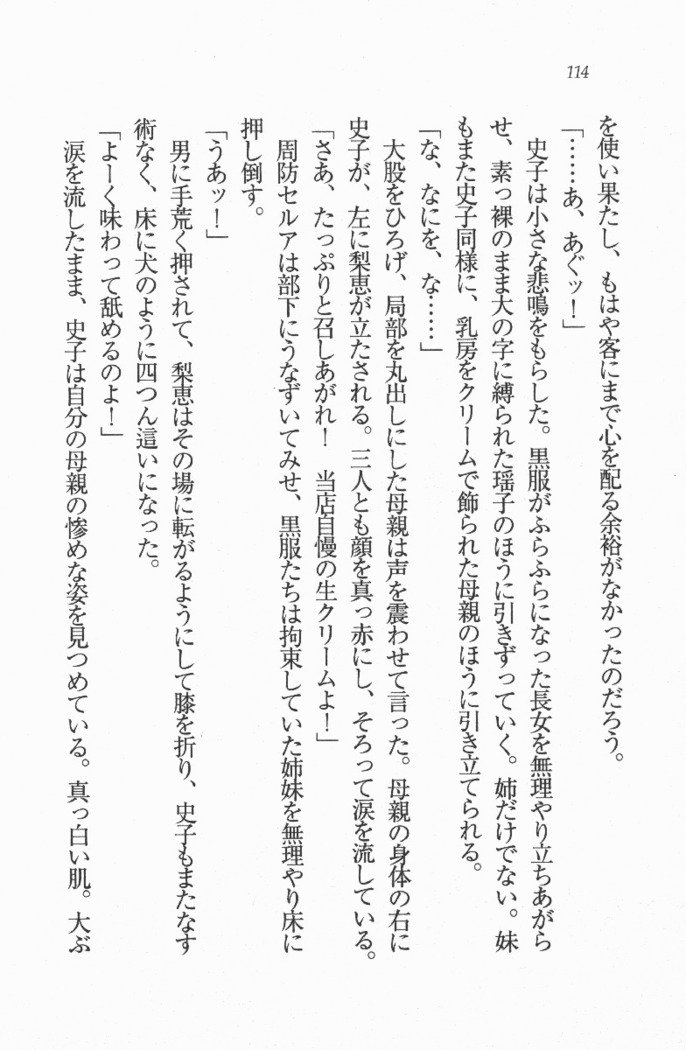 114
を使い果たし、もはや客にまで心を配る余裕がなかったのだろう。
「……あ、あぐッ！」
史子は小さな悲鳴をもらした。黒服がふらふらになった長女を無理やり立ちあがら
せ、素っ裸のまま大の字に縛られた瑶子のほうに引きずっていく。姉だけでない。妹
もまた史子同様に、乳房をクリームで飾られた母親のほうに引き立てられる。
「な、なにを、な……」
大股をひろげ、局部を丸出しにした母親は声を震わせて言った。母親の身体の右に
史子が、左に梨恵が立たされる。三人とも顔を真っ赤にし、そろって涙を流している。
「さあ、たっぷりと召しあがれ！　当店自慢の生クリームよ！」
周防セルアは部下にうなずいてみせ、黒服たちは拘束していた姉妹を無理やり床に
押し倒す。
「うあッ！」
男に手荒く押されて、梨恵はその場に転がるようにして膝を折り、史子もまたなす
術なく、床に犬のように四つん這いになった。
「よーく味わって舐めるのよ！」
涙を流したまま、史子は自分の母親の惨めな姿を見つめている。真っ白い肌。大ぶ